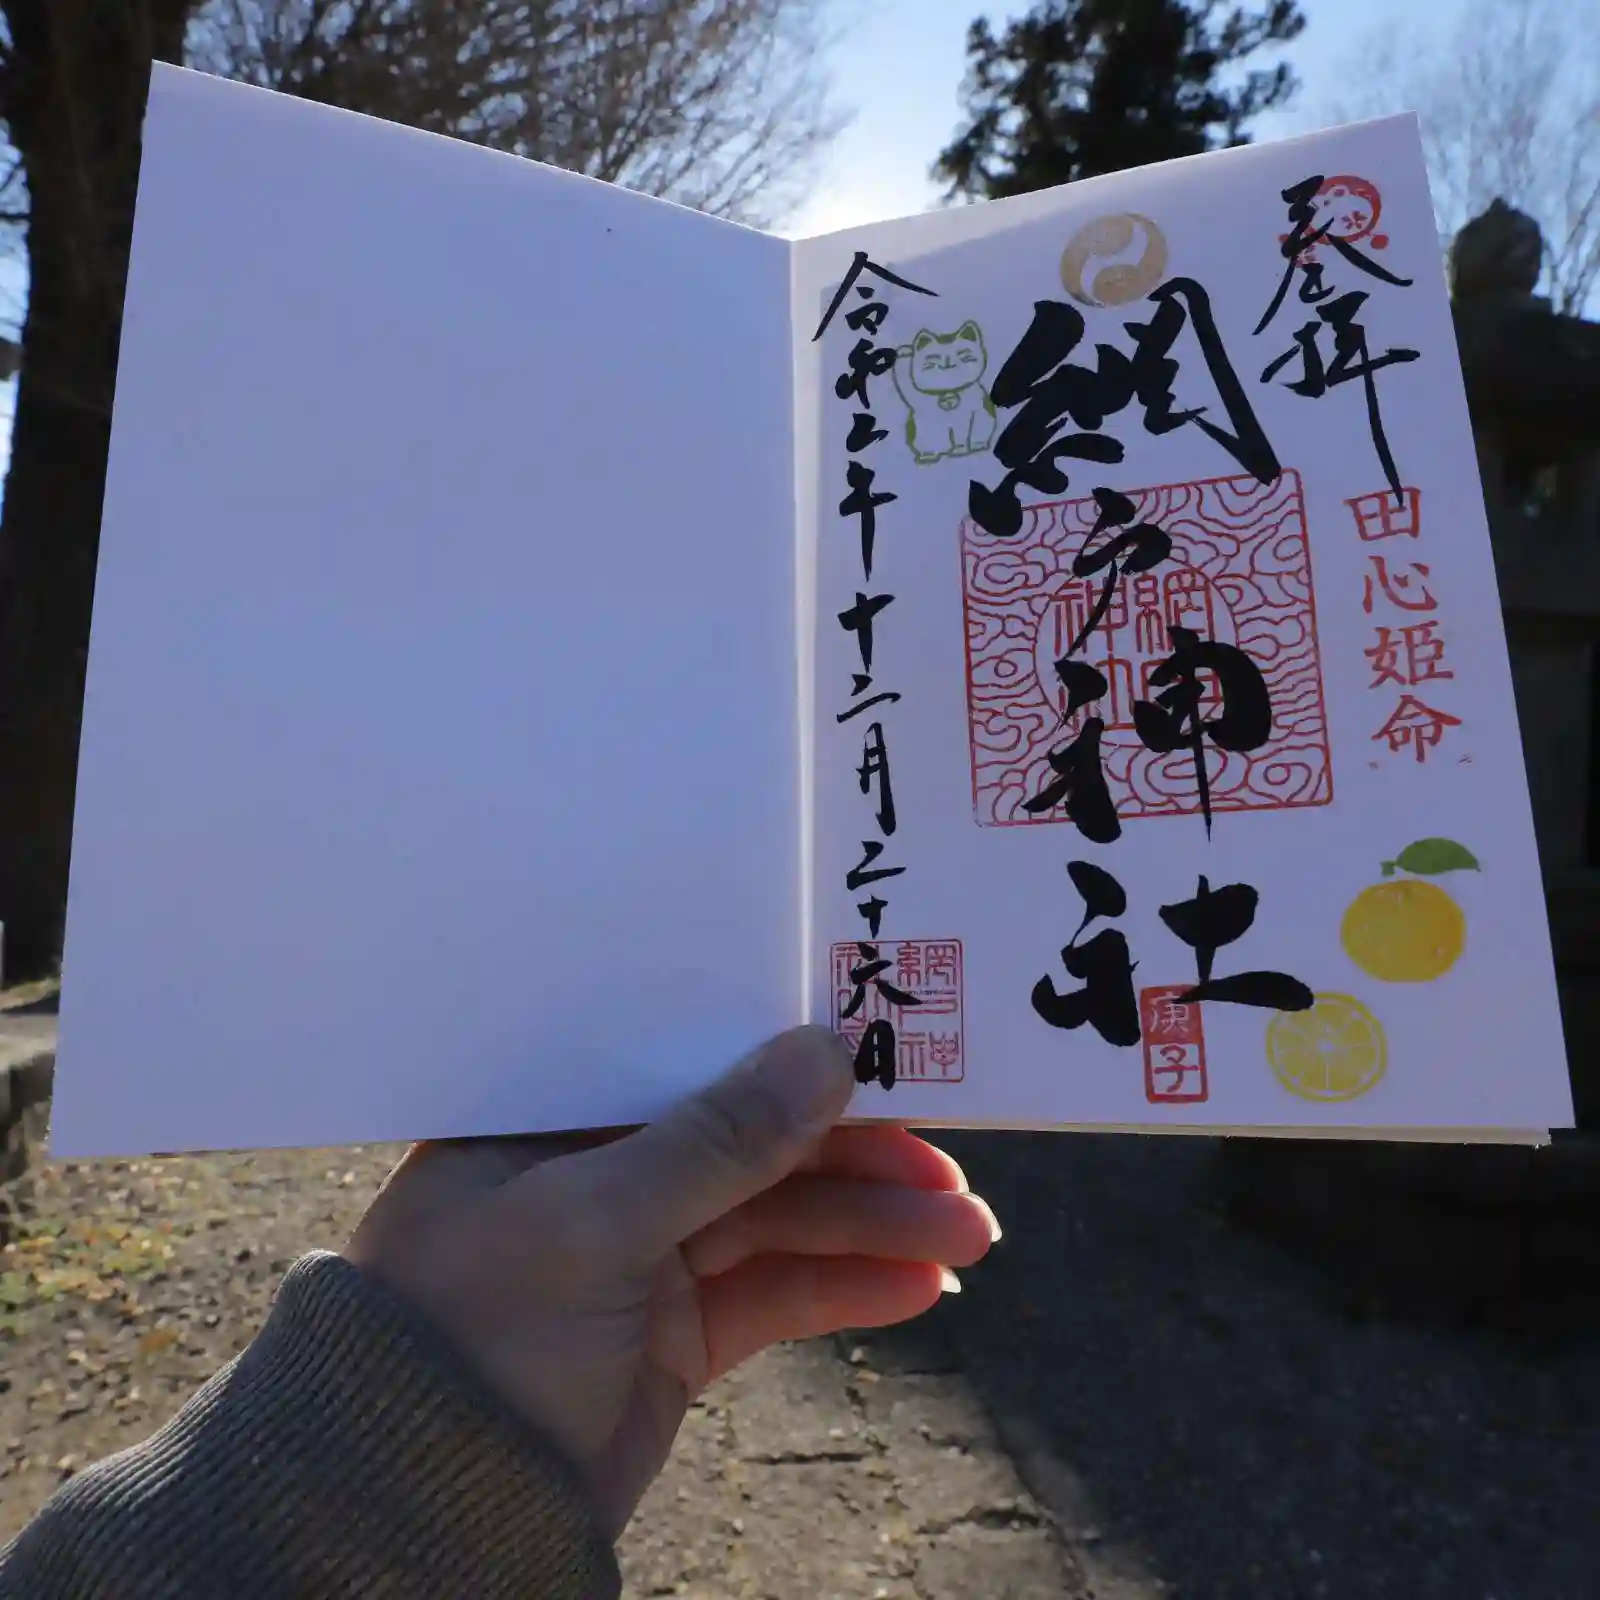 奉拝
田心姫命
網戸神社
網戸神社
庚子
令和二年十二月二十六日
網戸神